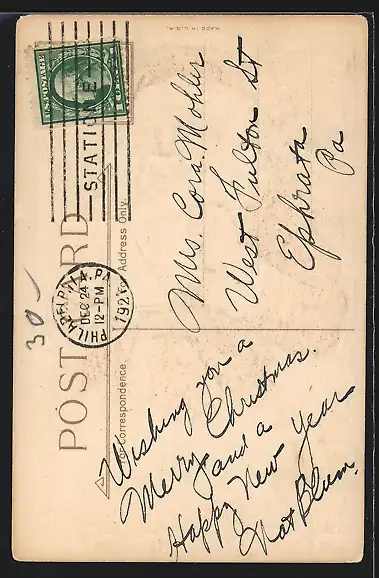 MADE IN U.S.A.
U.S. POSTAGE
STATION E
PHILADELPHIA, PA.
DEC 24
12-PM
192
30-
POST CARD
For Correspondence
For Address Only
Wishing you a
Merry Christmas.
and a
Happy New Year
Nat Blum.
Mrs. Cora Mohler
West Fulton St
Ephrata
Pa